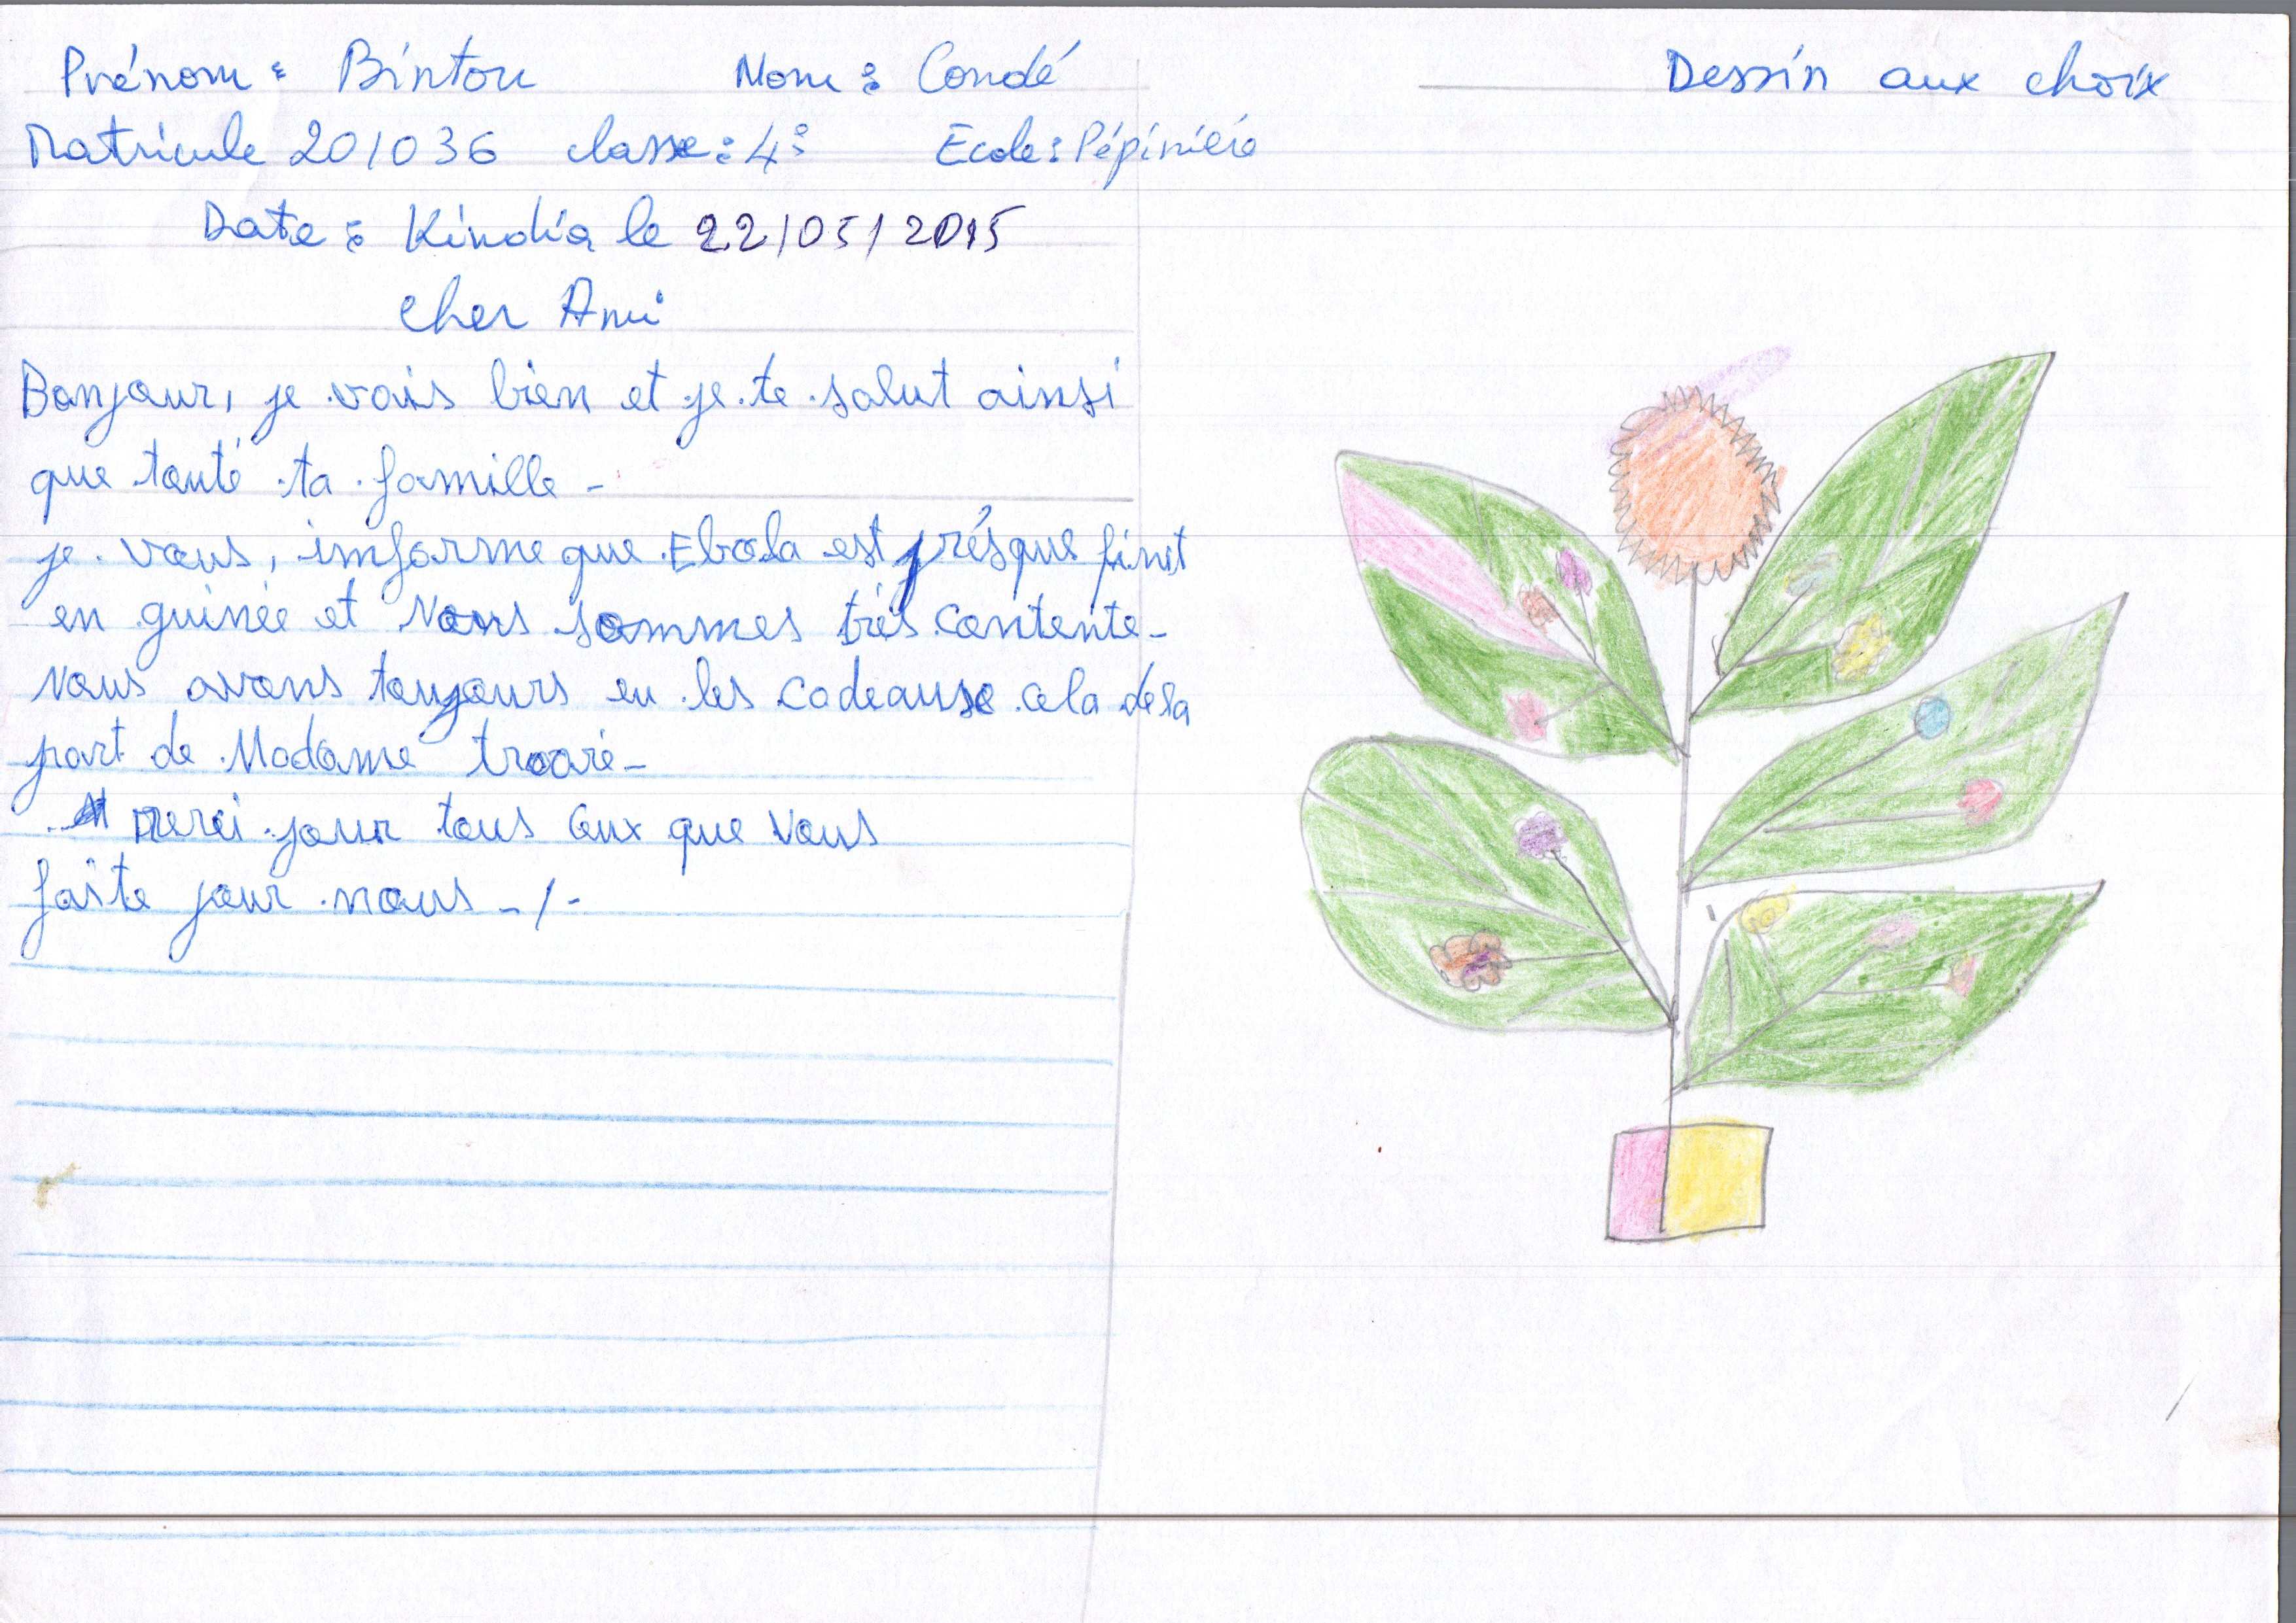 Prénom : Bintou Nom : Condé
Matricule 201036 classe : 4è Ecole : Pépinière
Date : Kindia le 22/05/2015
Cher Ami
Bonjour, je vais bien et je te salut ainsi
que touté ta famille -
je vous, informe que Ebola est présque finit
en guinée et Nous sommes très contente -
Nous avons toujours eu les cadeause cela dela
part de Madame traoré -
merci pour tous ceux que vous
faite pour nous -/-
Dessin aux choix